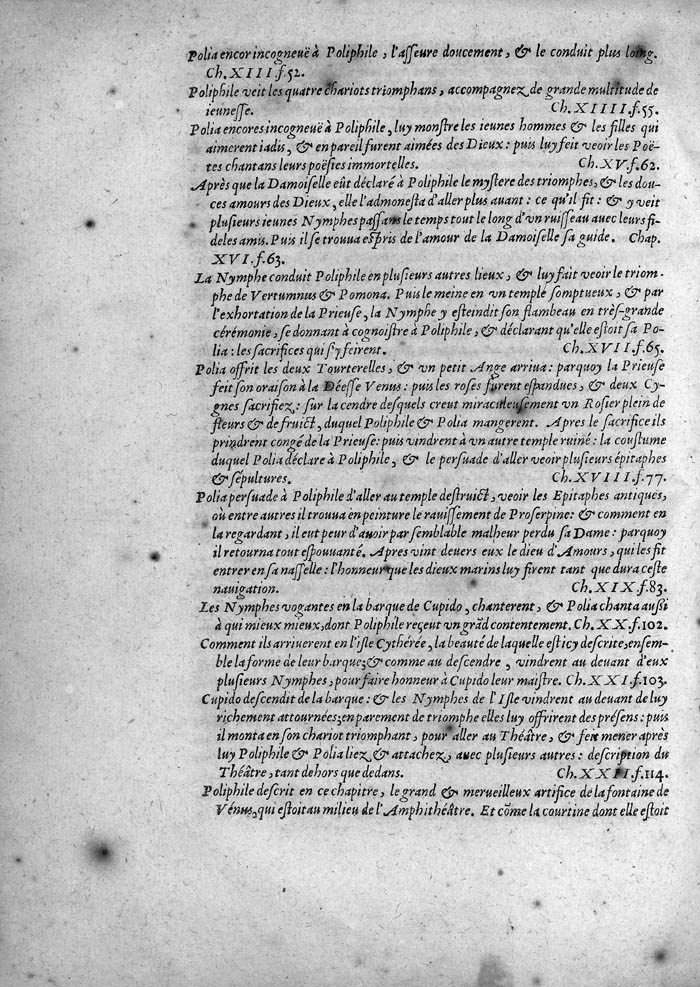 Polia encor incogneuë à Poliphile, l'asseure doucement, & le conduit plus loing.
Ch. XIII. f. 52.
Poliphile veit les quatre chariots triomphans, accompagnez de grande multitude de
ieunesse. Ch. XIIII. f. 55.
Polia encores incogneuë à Poliphile, luy monstre les ieunes hommes & les filles qui
aimerent iadis, & en pareil furent aimées des Dieux: puis luy feit veoir les Poë-
tes chantans leurs poësies immortelles. Ch. XV. f. 62.
Après que la Damoiselle eût déclaré à Poliphile le mystere des triomphes, & les dou-
ces amours des Dieux, elle l'admonesta d'aller plus auant: ce qu'il fit: & y veit
plusieurs ieunes Nymphes passans le temps tout le long d'vn ruisseau auec leurs fi-
deles amis. Puis il se trouua espris de l'amour de la Damoiselle sa guide. Chap.
XVI. f. 63.
La Nymphe conduit Poliphile en plusieurs autres lieux, & luy fait veoir le triom-
phe de Vertumnus & Pomona. Puis le meine en vn temple somptueux, & par
l'exhortation de la Prieuse, la Nymphe y esteindit son flambeau en très-grande
cérémonie, se donnant à cognoistre à Poliphile, & déclarant qu'elle estoit sa Po-
lia: les sacrifices qui s'y feirent. Ch. XVII. f. 65.
Polia offrit les deux Tourterelles, & vn petit Ange arriua: parquoy la Prieuse
feit son oraison à la Déesse Venus: puis les roses furent espandues, & deux Cy-
gnes sacrifiez: sur la cendre desquels creut miraculeusement vn Rosier plein de
fleurs & de fruict, duquel Poliphile & Polia mangerent. Apres le sacrifice ils
prindrent congé de la Prieuse: puis vindrent à vn autre temple ruiné: la coustume
duquel Polia déclare à Poliphile, & le persuade d'aller veoir plusieurs épitaphes
& sépultures. Ch. XVIII. f. 77.
Polia persuade à Poliphile d'aller au temple destruict, veoir les Epitaphes antiques,
où entre autres il trouua en peinture le rauissement de Proserpine: & comment en
la regardant, il eut peur d'auoir par semblable malheur perdu sa Dame: parquoy
il retourna tout espouuanté. Apres vint deuers eux le dieu d'Amours, qui les fit
entrer en sa nasselle: l'honneur que les dieux marins luy firent tant que dura ceste
nauigation. Ch. XIX. f. 83.
Les Nymphes vogantes en la barque de Cupido, chanterent, & Polia chanta aussi
à qui mieux mieux, dont Poliphile reçeut vn grãd contentement. Ch. XX. f. 102.
Comment ils arriuerent en l'isle Cythérée, la beauté de laquelle est icy descrite, ensem-
ble la forme de leur barque; & comme au descendre, vindrent au deuant d'eux
plusieurs Nymphes, pour faire honneur à Cupido leur maistre. Ch. XXI. f. 103.
Cupido descendit de la barque: & les Nymphes de l'Isle vindrent au deuant de luy
richement attournées; en parement de triomphe elles luy offrirent des présens: puis
il monta en son chariot triomphant, pour aller au Théâtre, & feit mener après
luy Poliphile & Polia liez & attachez, auec plusieurs autres: description du
Théâtre, tant dehors que dedans. Ch. XXII. f. 114.
Poliphile descrit en ce chapitre, le grand & merueilleux artifice de la fontaine de
Vénus, qui estoit au milieu de l'Amphithéâtre. Et cõme la courtine dont elle estoit